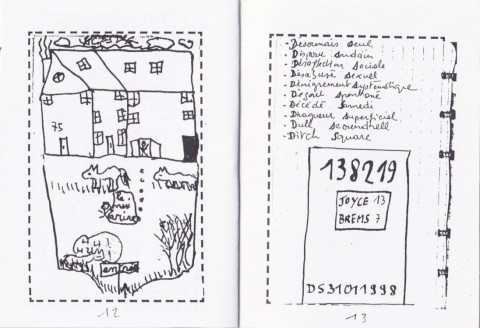 75
le
entrée
12
- Desormais Seul
- Disparu Sudain
- Désaffection Sociale
- Désabusé Sexuel
- Dénigrement Systématique
- Dégout Spontané
- Décédé Samedi
- Dragueur Superficiel
- Dull
- Ditch Square
138219
JOYCE 13
BREMS 7
DS31011998
13